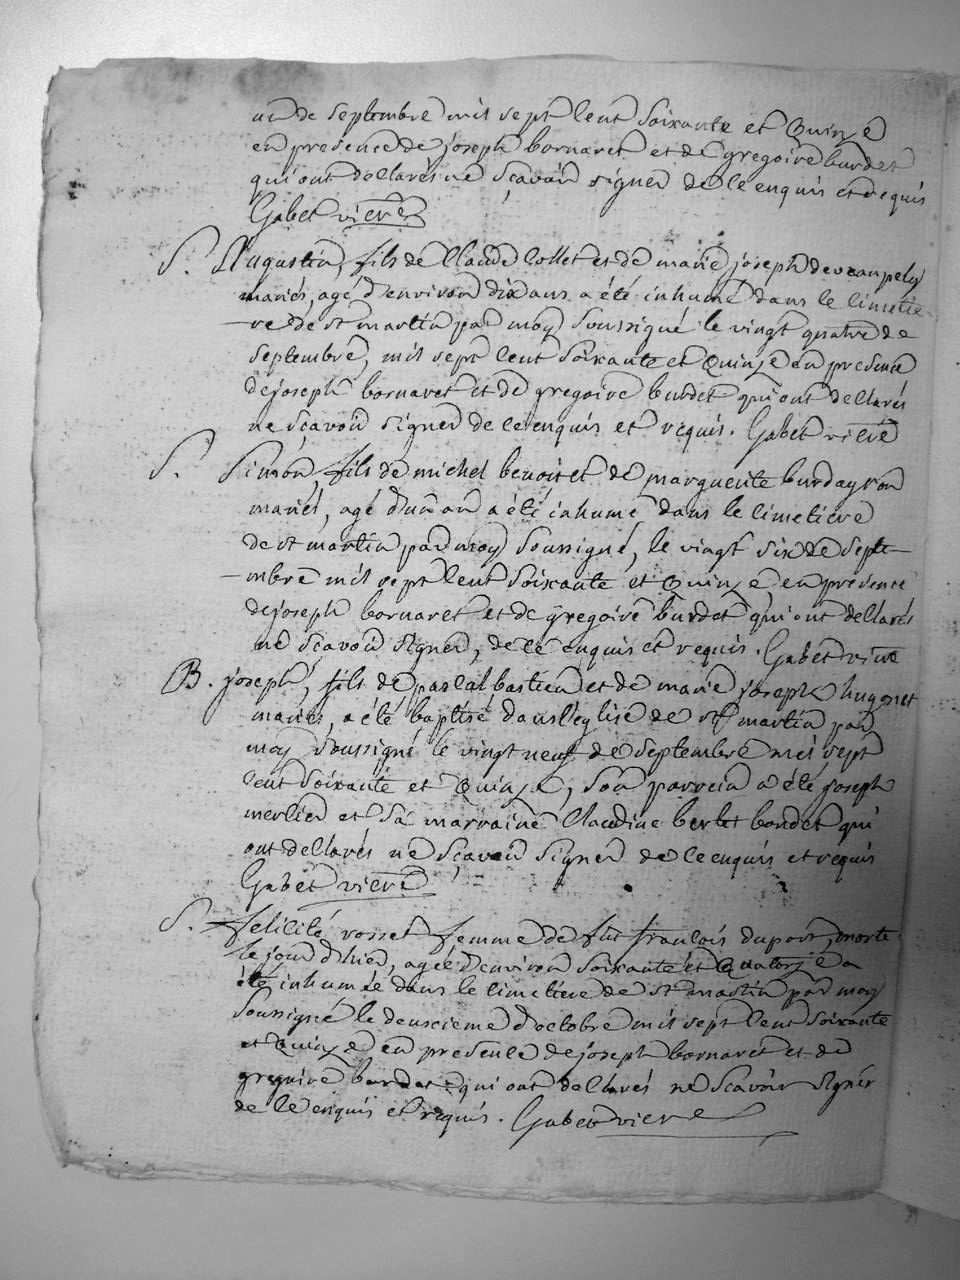 de septembre mil sept cent soixante et quinze
en presence de joseph bornaret et de gregoire burdet
qui ont declarés ne scavoir signer de ce enquis et requis
Gabet vicre
S. Augustin, fils de Claude Collet et de marie joseph
mariés, agé d'environ dix ans a été inhumé dans le cimetie
-re de st martin par moy soussigné le vingt quatre de
septembre, mil sept cent soixante et quinze en presence
de joseph bornaret et de gregoire burdet qui ont declarés
ne scavoir signer de ce enquis et requis. Gabet vicre
S. Simon, fils de michel benoit et de marguerite burdayron
mariés, agé d'un an a été inhumé dans le cimetiere
de st martin par moy soussigné, le vingt six de septe-
-mbre mil sept cent soixante et quinze, en présence
de joseph bornaret et de gregoire burdet qui ont declarés
ne scavoir signer, de ce enquis et requis. Gabet vicre
B. joseph, fils de pascal bastien et de marie joseph hugonet
mariés, a été baptisé dans l'eglise de st martin par
moy soussigné le vingt neuf de septembre mil sept
cent soixante et quinze, son parrein a été joseph
merlier et sa marraine Claudine berlet bondet qui
ont declarés ne scavoir signer de ce enquis et requis
Gabet vicre
S. felicité rosset femme de fut francois duport, morte
le jour d'hier, agée d'environ soixante et quatorze a
été inhumée dans le cimetiere de st martin par moy
soussigné le deuxcieme d'octobre mil sept cent soixante
et quinze en presence de joseph bornaret et de
gregoire burdet qui ont declarés ne scavoir signer
de ce enquis et requis. Gabet vicre